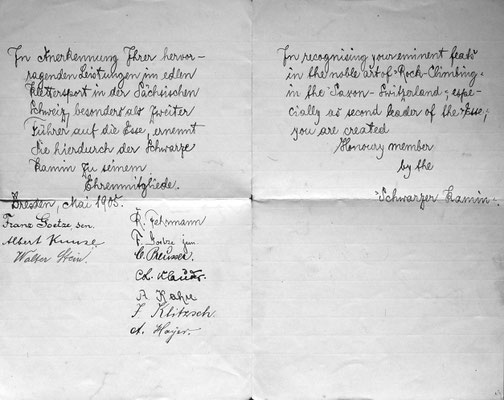 In Anerkennung Ihrer hervor-
ragenden Leistungen im edlen
Klettersport in der Sächsischen
Schweiz, besonders als zweiter
Führer auf die Esse, ernennt
Sie hierdurch der Schwarze
Kamin zu seinem
Ehrenmitgliede.
Dresden, Mai 1905.
Franz Goetze sen.
Albert Kunze
Walter Hein.
R. Fehrmann
F. Goetze jun
C. Beusser
A. Hahn
F. Klitzsch
A. Hojer.
In recognising your eminent feats
in the noble art of "Rock-Climbing"
in the "Saxon-Switzerland", espe-
cially as second leader of the "Esse",
you are created
Honoury member
by the
"Schwarzer Kamin".